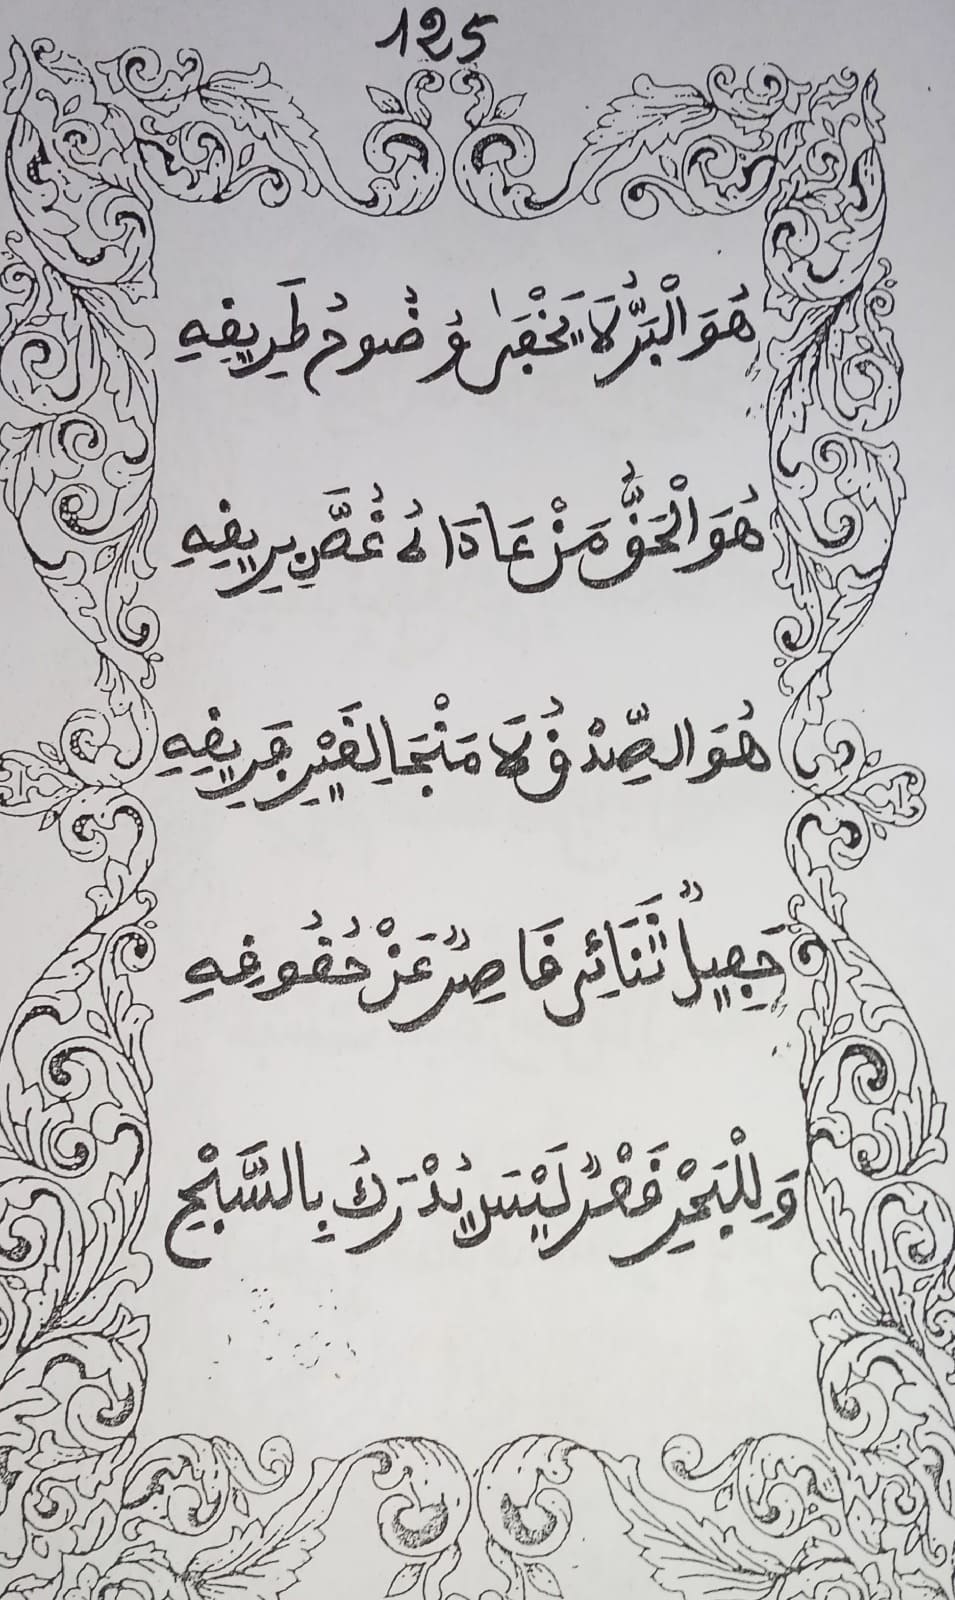 125
هُوَ الْبَرُّ لَا يَخْفَىٰ وُضُوحُ طَرِيقِهِ
هُوَ الْحَقُّ مَنْ عَادَاهُ غُصَّ بِرِيقِهِ
هُوَ الصِّدْقُ لَا مَنْجَا لِغَيْرِ فَرِيقِهِ
جَمِيلُ ثَنَائِي قَاصِرٌ عَنْ حُقُوقِهِ
وَلِلْبَحْرِ قَعْرٌ لَيْسَ يُدْرَكُ بِالسَّبْحِ